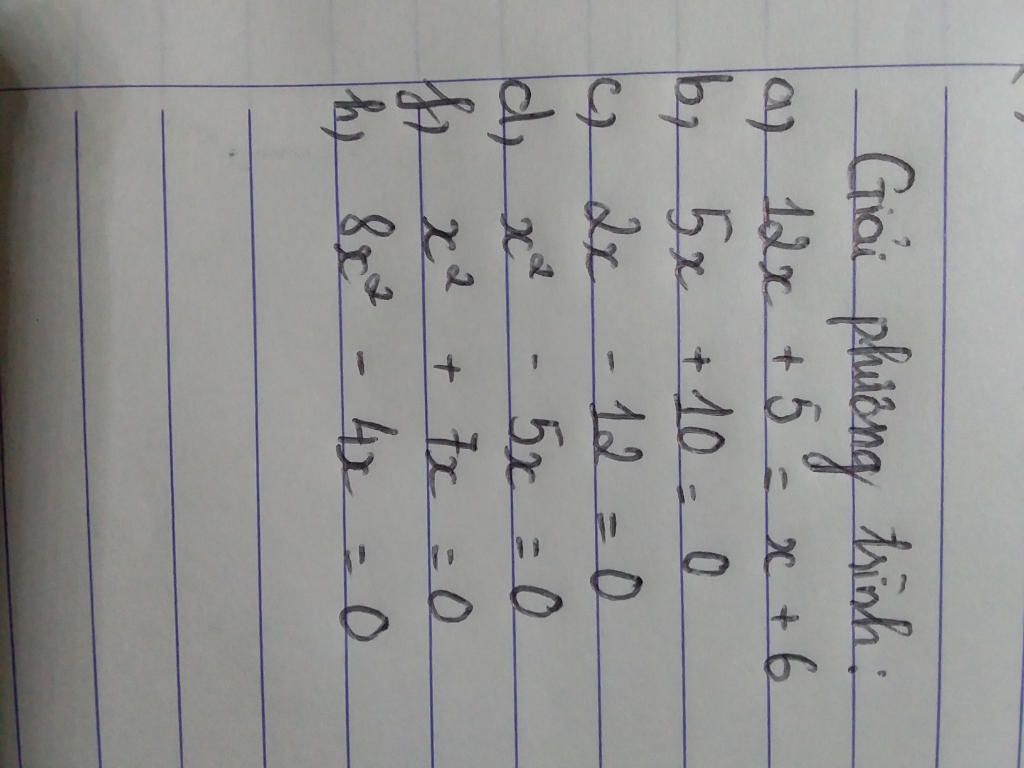 Giải phương trình:
a, 12x + 5 = x + 6
b, 5x + 10 = 0
c, 2x - 12 = 0
d, x² - 5x = 0
f, x² + 7x = 0
h, 8x² - 4x = 0